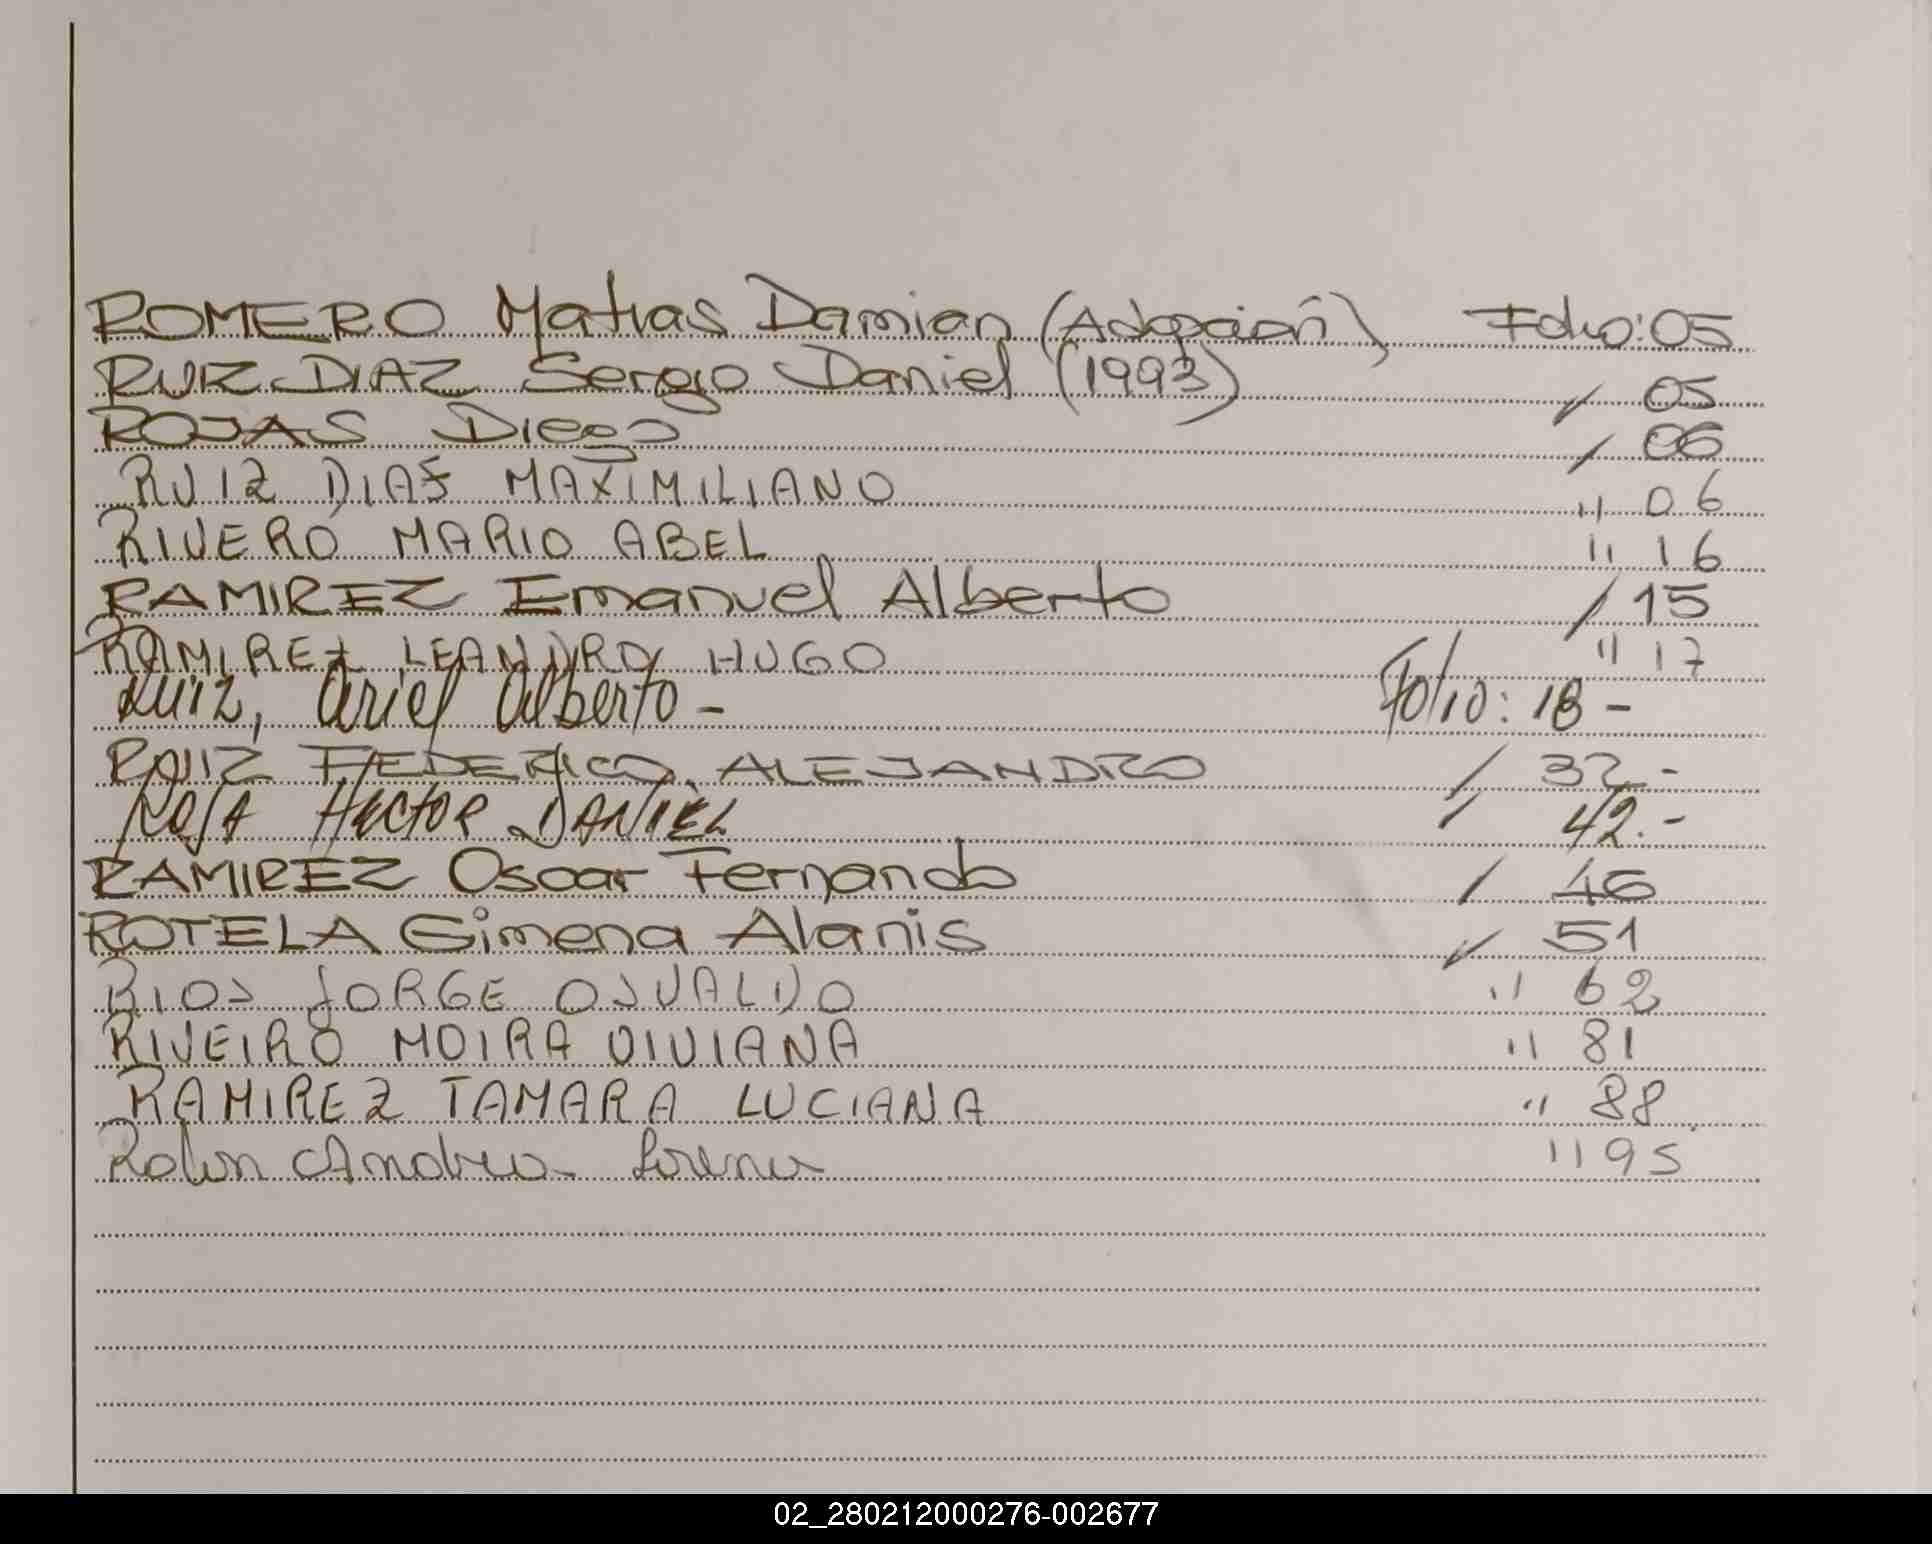 ROMERO Matias Damian (Adopción) Folio: 05
RUIZ DIAZ Sergio Daniel (1993) / 05
ROJAS Diego / 06
RUIZ DIAZ MAXIMILIANO " 06
RIVERO MARIO ABEL " 16
RAMIREZ Emanuel Alberto / 15
RAMIREZ LEANDRO HUGO " 17
Ruiz, Ariel Alberto - Folio: 18 -
RUIZ FEDERICO ALEJANDRO / 32.-
ROSA HECTOR DANIEL / 42.-
RAMIREZ Oscar Fernando / 46
ROTELA Gimena Alanis / 51
RIOS JORGE OSVALDO " 62
RIVEIRO MOIRA VIVIANA " 81
RAMIREZ TAMARA LUCIANA " 88
Rolon Andrea Lorena " 95
02_280212000276-002677